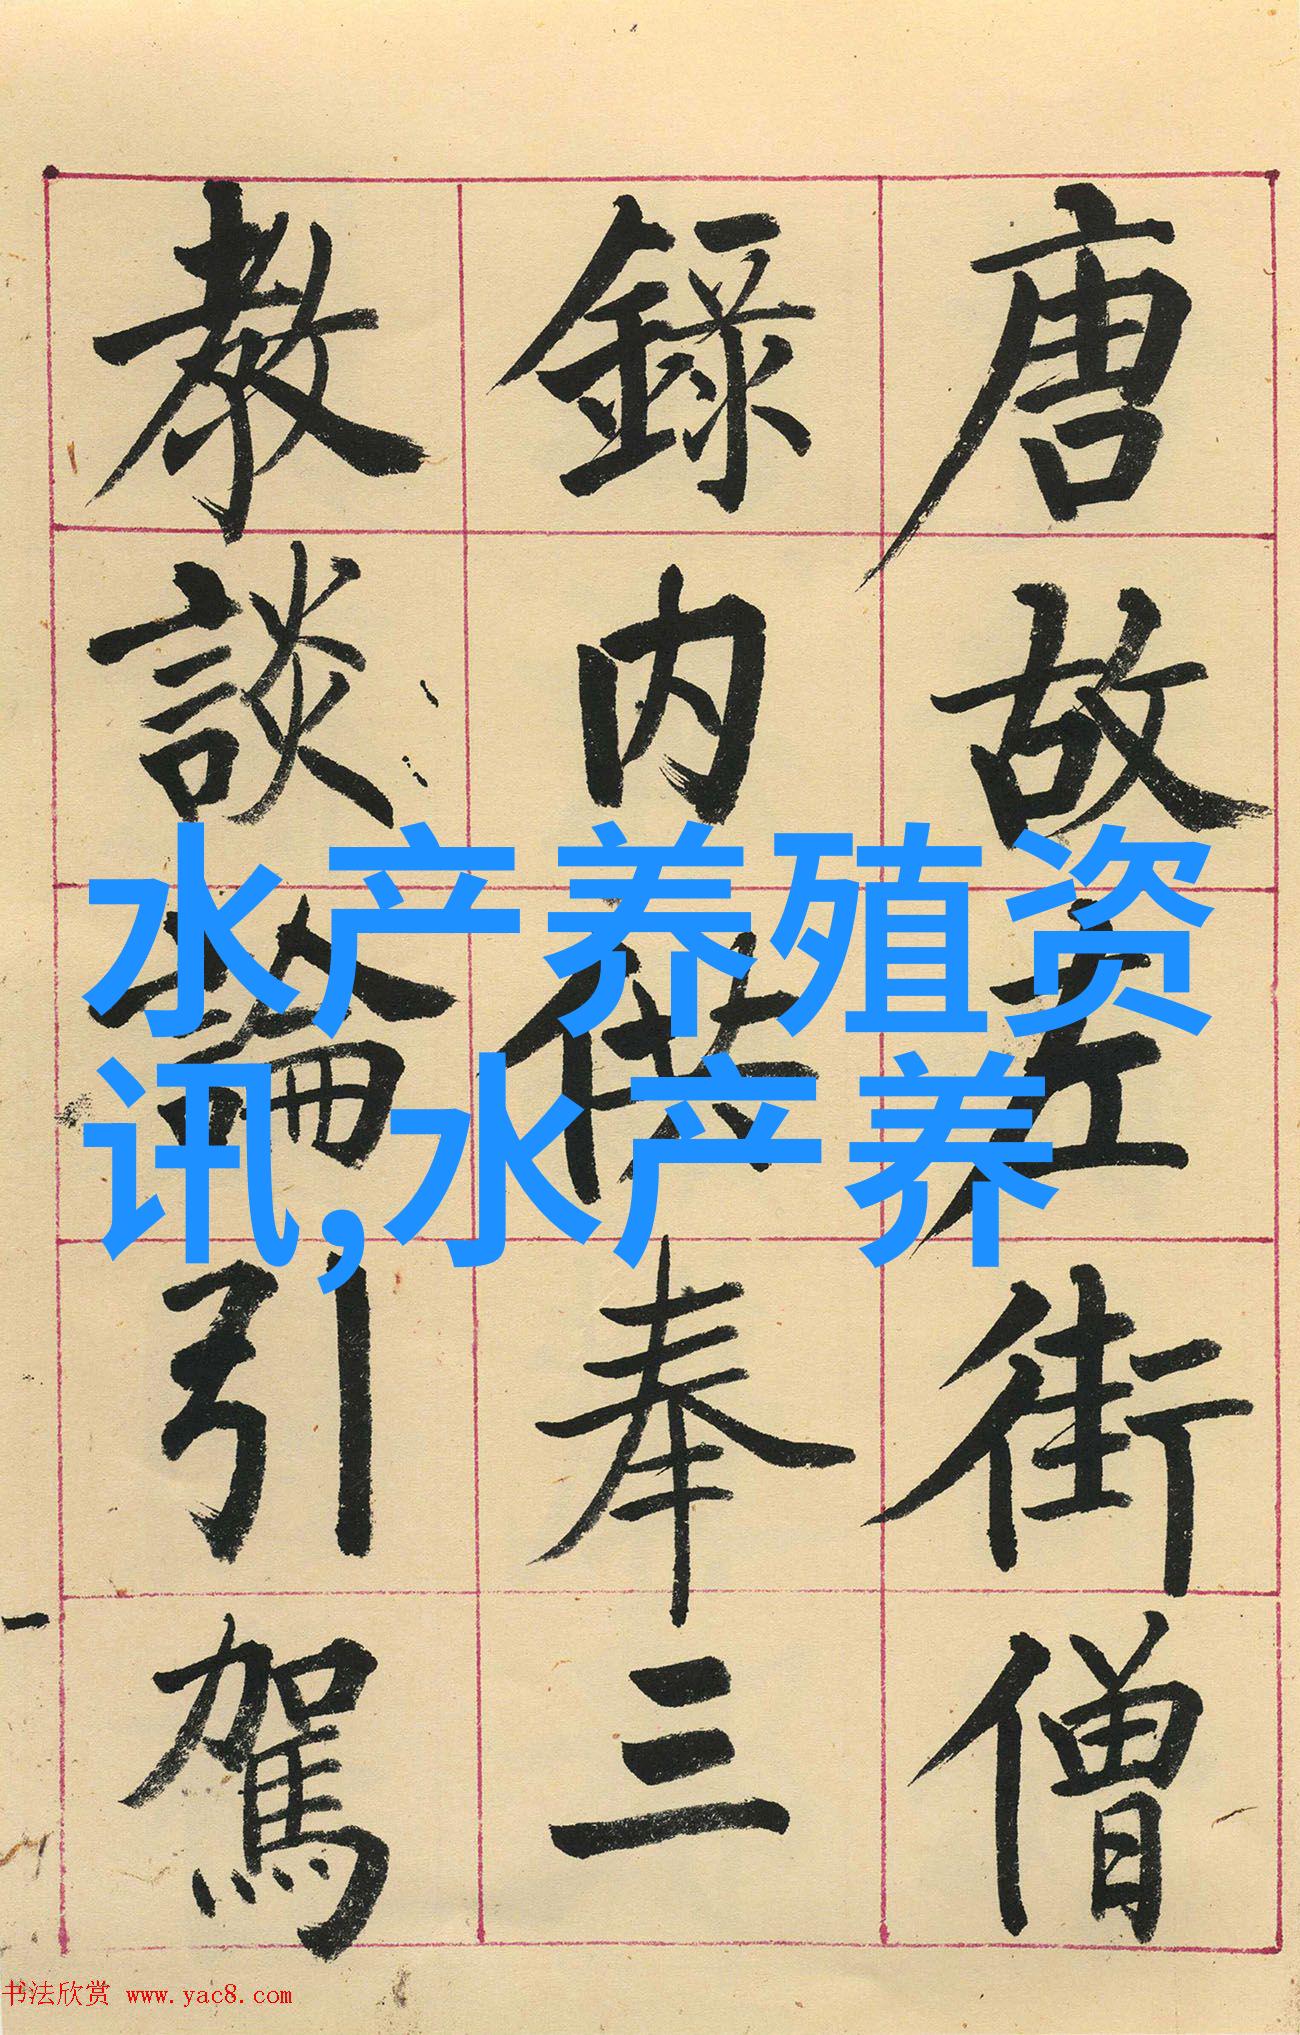 唐故左街僧
錄内供奉三
教談論引駕
水产养殖资
讯,水产养
书法欣赏 www.yac8.com